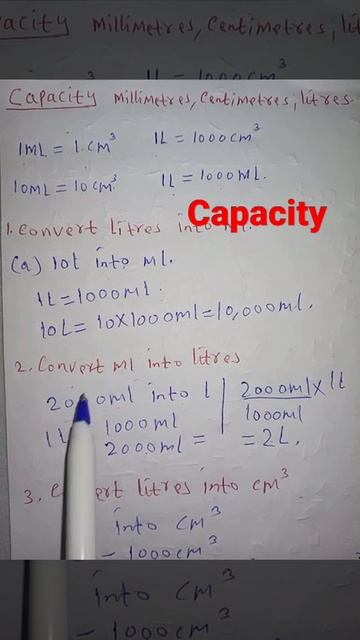 acity Millimetres, Centimetres, lit
1L = 1000cm³
Capacity Millimetres, Centimetres, litres.
1ML = 1.cm³ 1L = 1000cm³
10ML = 10cm³ 1L = 1000ML.
Capacity
1. Convert litres into ml.
(a) 10l into ml.
1L = 1000ml.
10L = 10X1000ml = 10,000ml.
2. Convert ml into litres
2000ml into l 2000ml x 1l
1L 1000ml 1000ml
2000ml = = 2L.
3. Convert litres into cm³
into cm³
- 1000cm³
into cm³
- 1000cm³